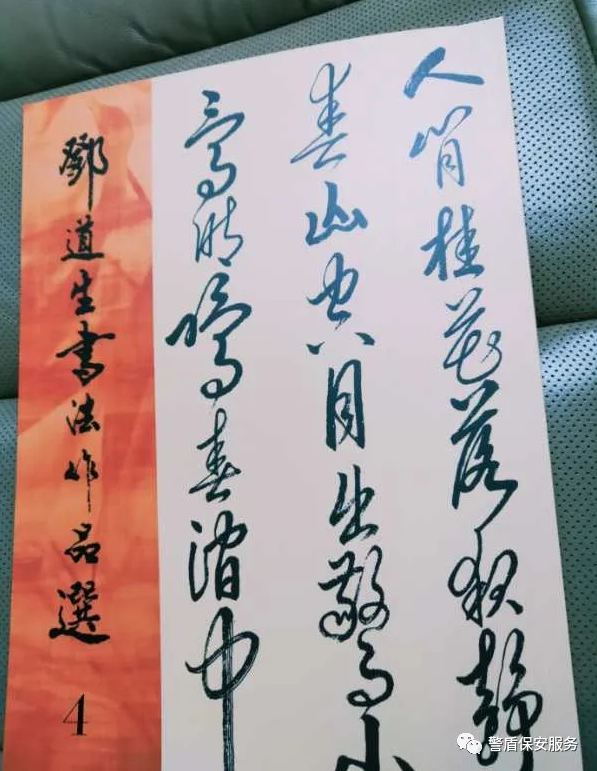 人閒桂花落夜靜
春山空月出驚山
鳥時鳴春澗中
鄧道生書法作品選 4
警盾保安服务